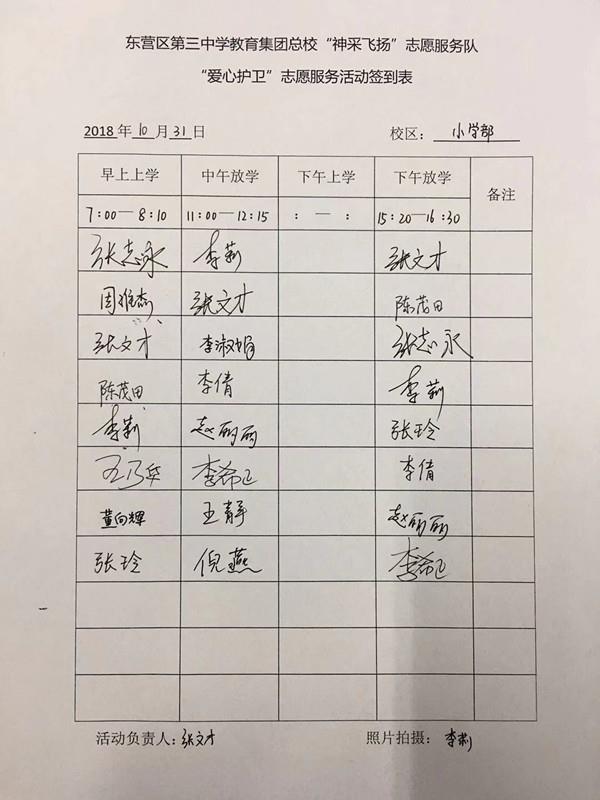 东营区第三中学教育集团总校“神采飞扬”志愿服务队
“爱心护卫”志愿服务活动签到表
2018 年 10 月 31 日 校区： 小学部
早上上学 中午放学 下午上学 下午放学 备注
7:00—8:10 11:00—12:15 : — : 15:20—16:30
张志永 李莉 张文才
周雅楠 张文才 陈茂田
张文才 李淑娟 张志永
陈茂田 李倩 李莉
李莉 赵丽丽 张玲
王乃华 李希卫 李倩
董向辉 王静 赵丽丽
张玲 倪燕 李希卫
活动负责人：张文才 照片拍摄： 李莉